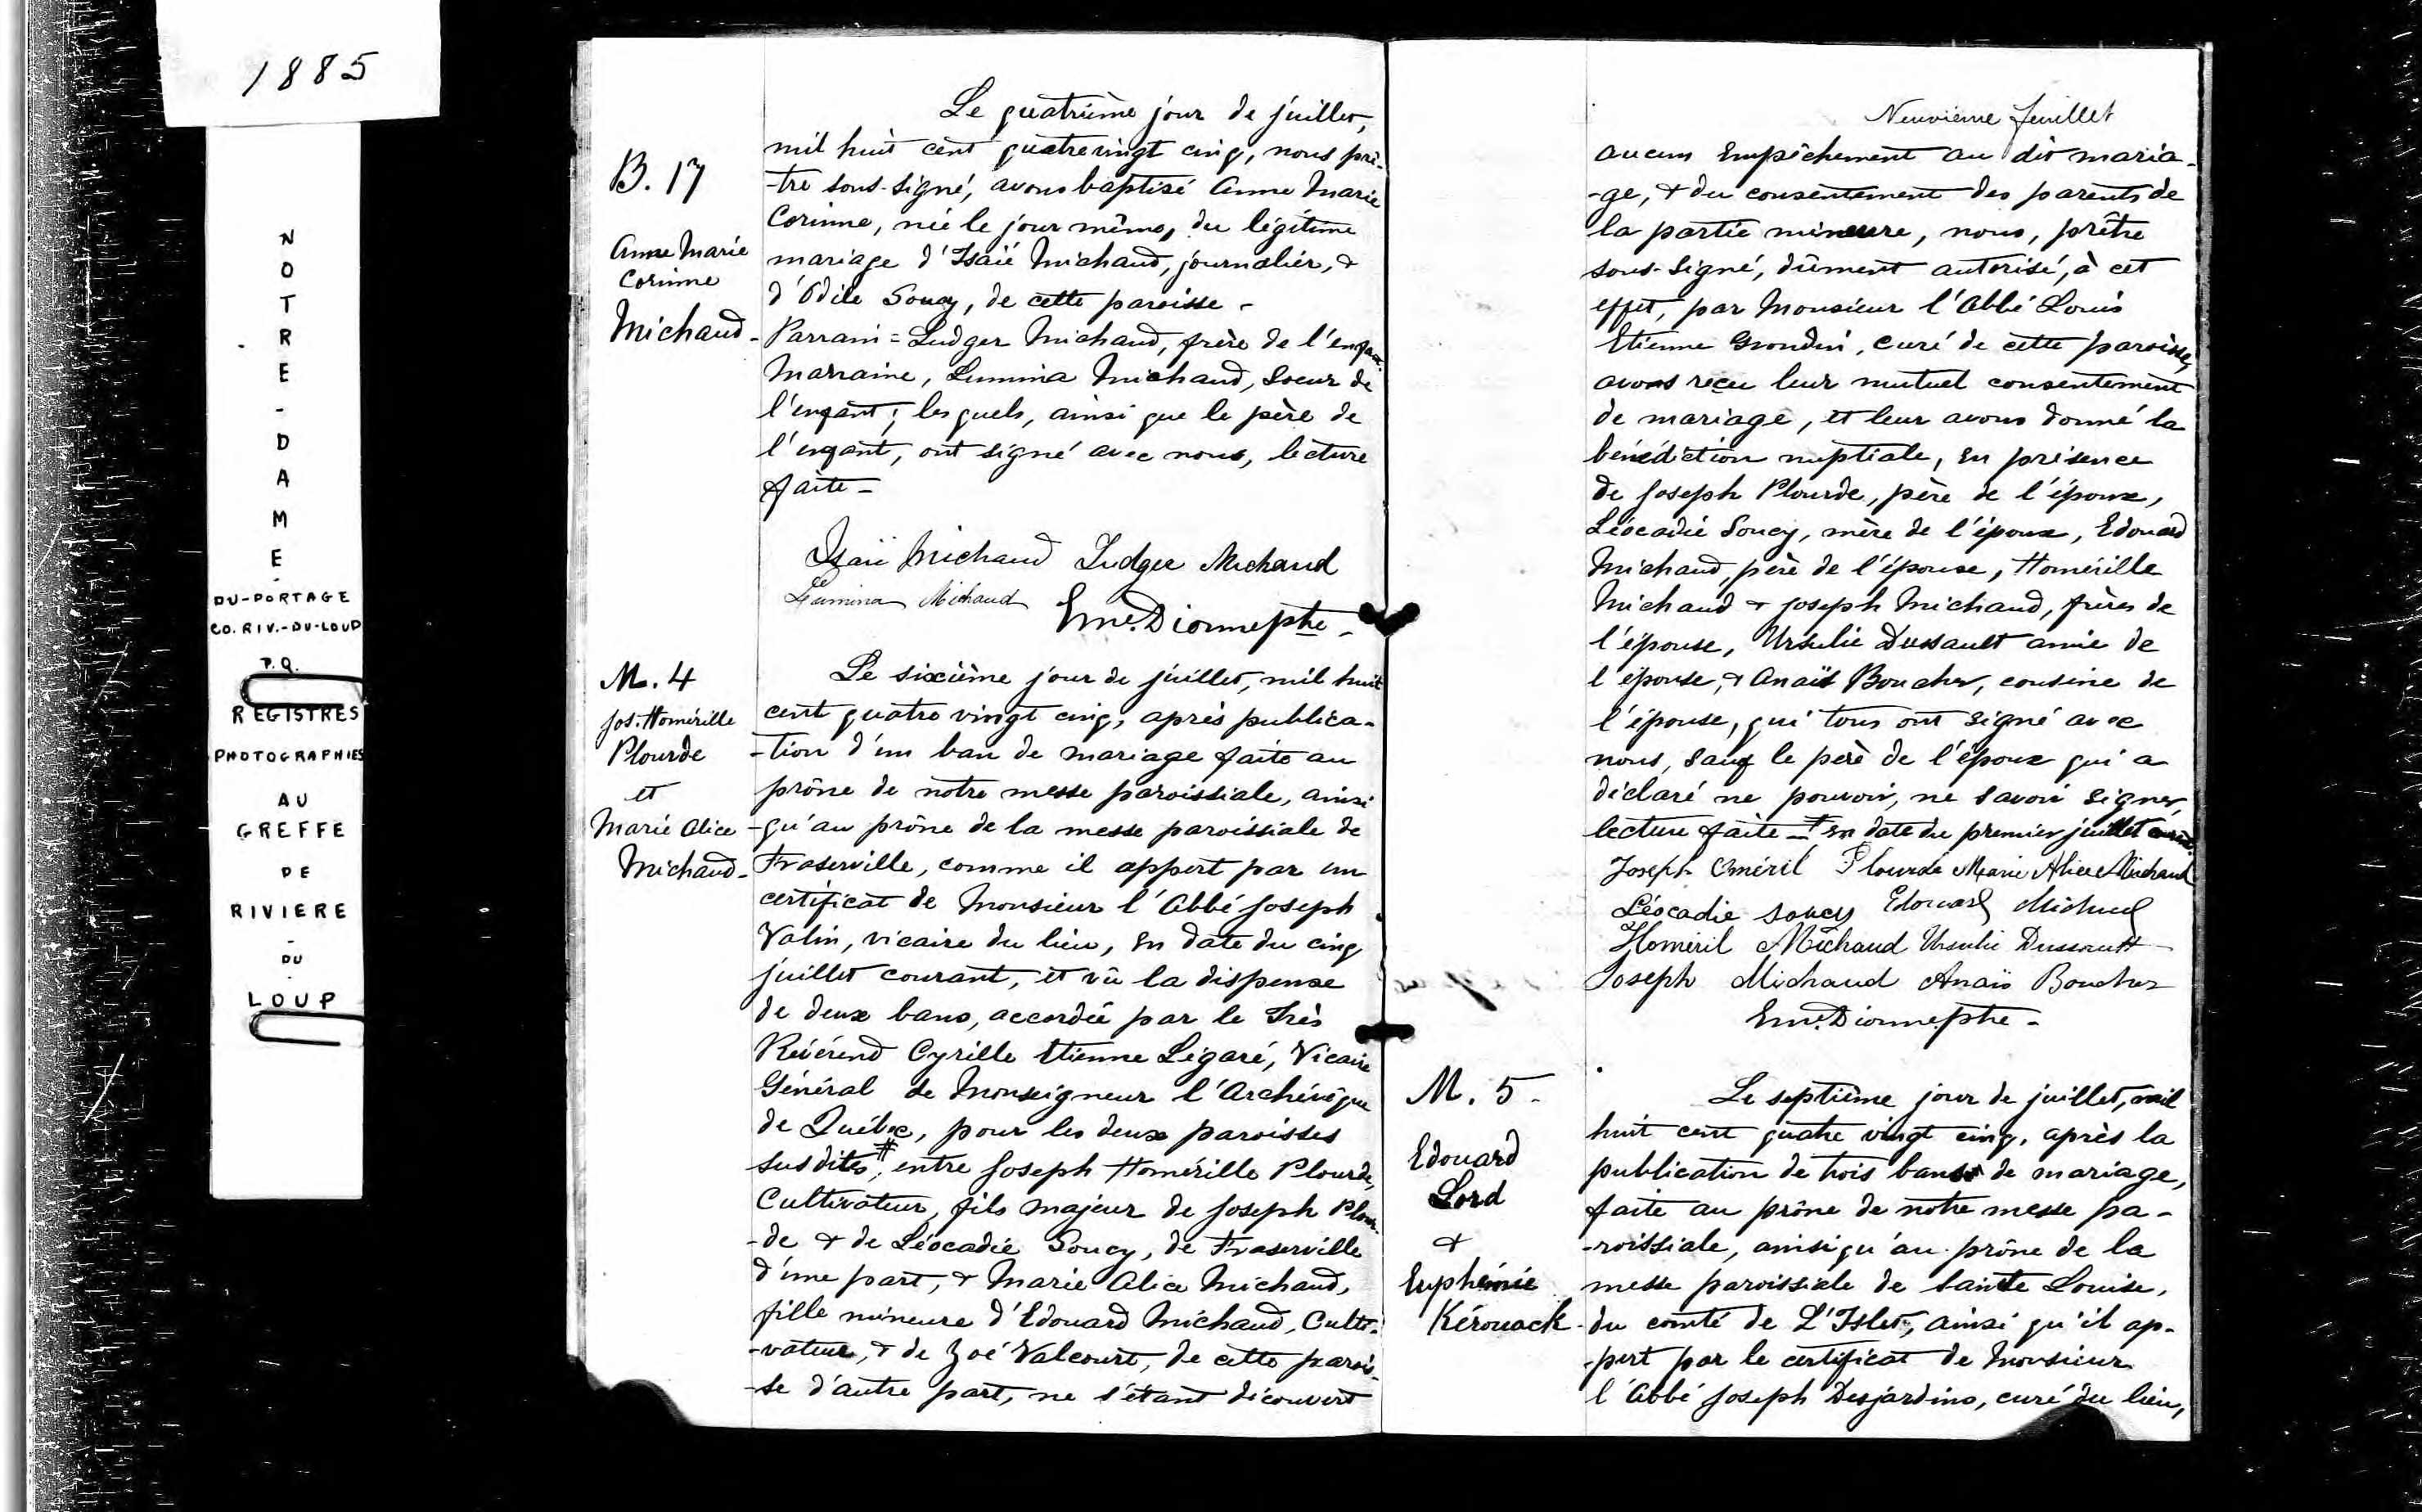 1885
NOTRE-DAME-
DU-PORTAGE
CO. RIV.-DU-LOUP
P.Q.
REGISTRES
PHOTOGRAPHIES
AU
GREFFE
DE
RIVIERE
-
DU
-
LOUP
B. 17
Anne Marie
Corinne
Michaud-
Le quatrième jour de juillet,
mil huit cent quatrevingt cinq, nous prê-
-tre sous-signé, avons baptisé Anne Marie
Corinne, née le jour même, du légitime
mariage d'Isaïe Michaud, journalier, &
d'Odile Soucy, de cette paroisse-
Parrain = Ludger Michaud, frère de l'enfant.
Marraine, Lumina Michaud, Soeur de
l'enfant; lesquels, ainsi que le père de
l'enfant, ont signé avec nous, lecture
faite-
Isaïe Michaud Ludger Michaud
Lumina Michaud
Em. Dionne ptre-
M. 4
Jos. Homérille
Plourde
et
Marie Alice
Michaud-
Le sixième jour de juillet, mil huit
cent quatre vingt cinq, après publica-
-tion d'un ban de mariage faite au
prône de notre messe paroissiale, ainsi
-qu'au prône de la messe paroissiale de
Fraserville, comme il appert par un
certificat de Monsieur l'Abbé Joseph
Valin, vicaire du lieu, en date du cinq
juillet courant, et vû la dispense
de deux bans, accordée par le Très
Révérend Cyrille Etienne Légaré, Vicaire
Général de Monseigneur l'Archévêque
de Québec, pour les deux paroisses
susdites,# entre Joseph Homérille Plourde,
Cultivateur, fils majeur de Joseph Plour-
-de & de Léocadie Soucy, de Fraserville
d'une part, & Marie Alice Michaud,
fille mineure d'Edouard Michaud, Culti-
-vateur, & de Zoé Valcourt, de cette parois-
-se d'autre part, ne s'étant découvert
Neuvième feuillet
aucun Empêchement au dit maria-
-ge, & du consentement des parents de
la partie mineure, nous, prêtre
sous-Signé, dûment autorisé, à cet
effet, par Monsieur l'Abbé Louis
Etienne Grondin, curé de cette paroisse,
avons reçu leur mutuel consentement
de mariage, et leur avons donné la
bénédiction nuptiale, en présence
de Joseph Plourde, père de l'époux,
Léocadie Soucy, mère de l'époux, Edouard
Michaud, père de l'épouse, Homérille
Michaud & Joseph Michaud, frères de
l'épouse, Ursulie Dussault amie de
l'épouse, & Anaïs Boucher, cousine de
l'épouse, qui tous ont signé avec
nous, sauf le père de l'époux qui a
déclaré ne pouvoir, ne savoir signer
lecture faite-# en date du premier juillet
Joseph Oméril Plourde Marie Alice Michaud
Léocadie Soucy Edouard Michaud
Homéril Michaud Ursulie Dussault
Joseph Michaud Anaïs Boucher
Em. Dionne ptre-
M. 5-
Edouard
Lord
&
Euphémie
Kérouack-
Le septième jour de juillet, mil
huit cent quatre vingt cinq, après la
publication de trois bans de mariage,
faite au prône de notre messe pa-
-roissiale, ainsi qu'au prône de la
messe paroissiale de Sainte Louise,
du comté de L'Islet, ainsi qu'il ap-
-pert par le certificat de Monsieur
l'Abbé Joseph Desjardins, curé du lieu,